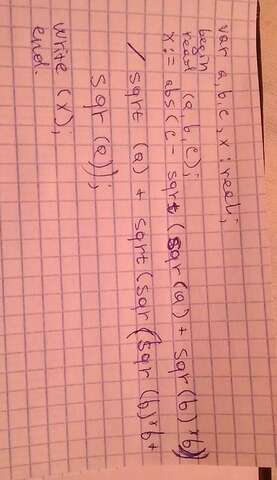 var a,b,c,x:real;
begin
read (a,b,c);
x:= abs(c - sqrt (sqr(a) + sqr(b)*b)
/ sqrt (a) + sqrt(sqr(sqr (b)*b+
sqr (a));
write (x);
end.